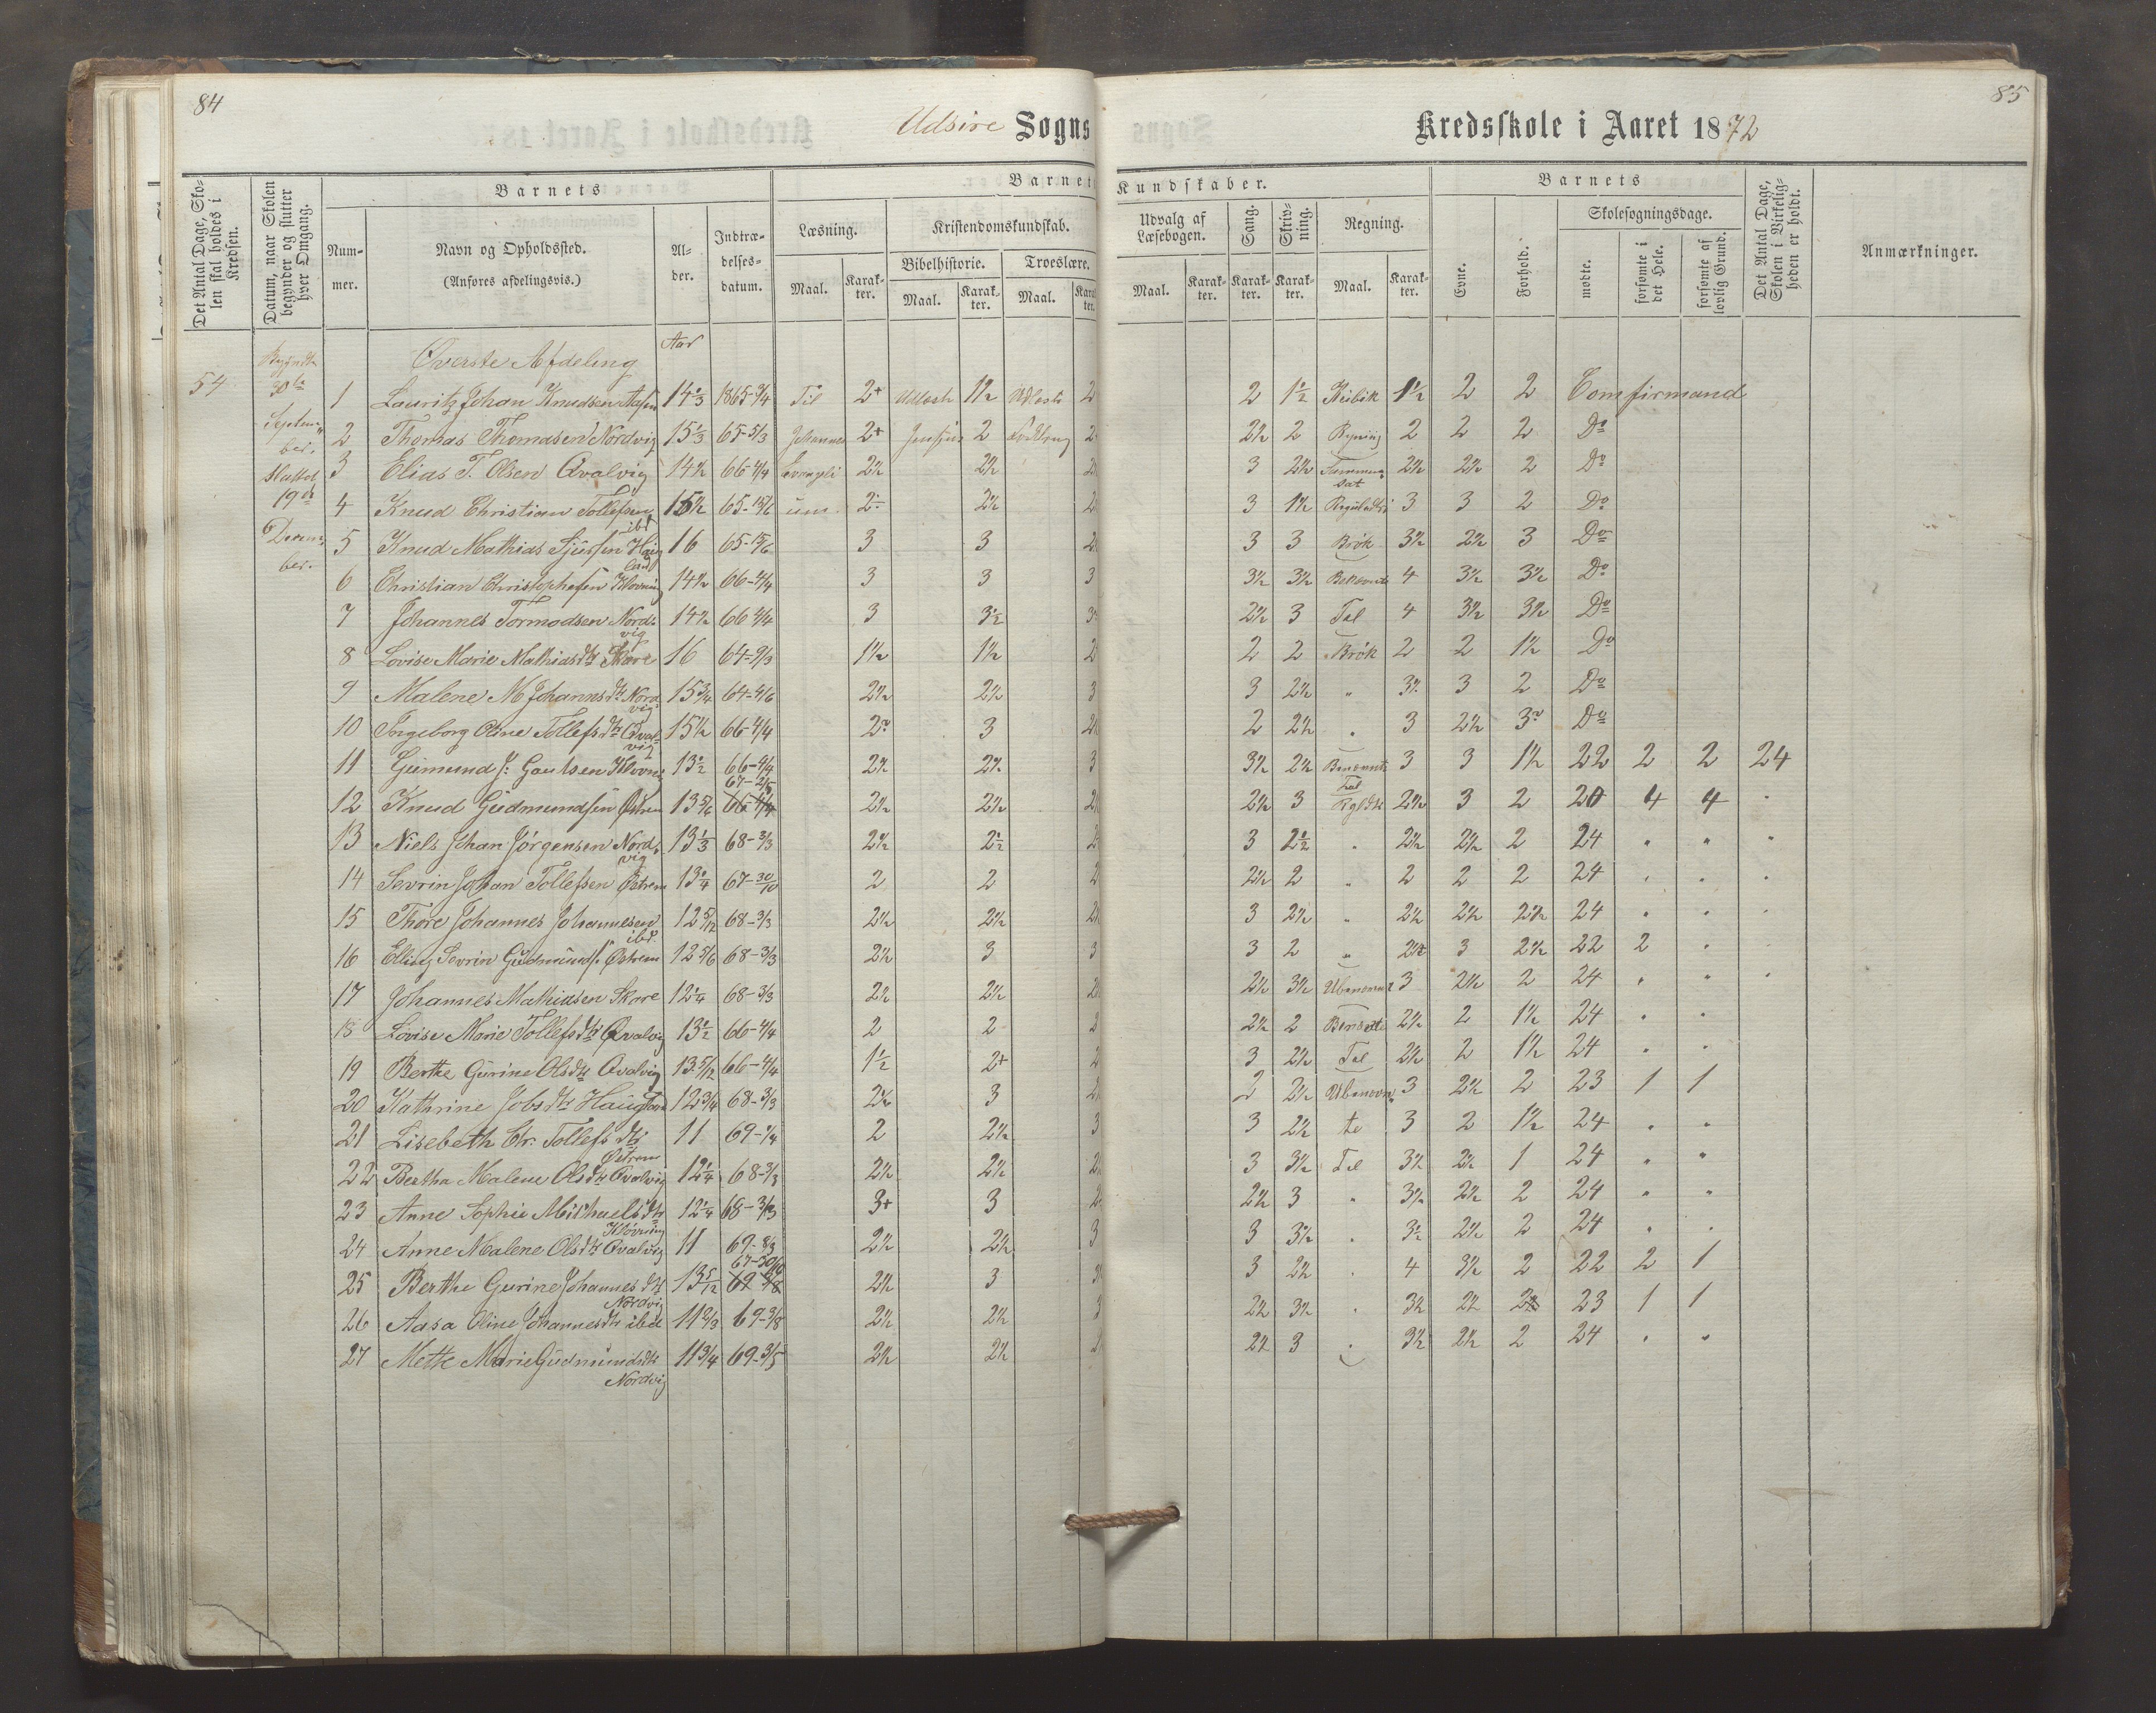 84
Udsire Sogns
Kredsskole i Aaret 1872
85
Det Antal Dage, Skolen skal holdes i Kredsen.
Datum, naar Skolen begynder og slutter hver Omgang.
Barnets
Nummer.
Navn og Opholdssted.
(Anføres afdelingsvis.)
Alder.
Indtrædelsesdatum.
Barnets Kundskaber.
Læsning.
Kristendomskundskab.
Bibelhistorie.
Troeslære.
Udvalg af Læsebogen.
Sang.
Skrivning.
Regning.
Maal. Karakter. Maal. Karakter. Maal. Karakter. Maal. Karakter. Karakter. Karakter. Maal. Karakter.
Barnets
Evne.
Forhold.
Skolesøgningsdage.
mødte.
forsømte i det Hele.
forsømte af lovlig Grund.
Det Antal Dage, Skolen i Virkeligheden er holdt.
Anmærkninger.
Aar
Øverste Afdeling
54
Begyndte 30te September. Sluttet 19de December.
1 Lauritz Johan Knudsen Aasen 14 1/3 1865-4/4 Til 2+ Udlæst 1½ Udlæst 2 2 1½ Kubik 1½ 2 2 Comfirmand
2 Thomas Thomasen Nordvig 15 1/3 65-5/3 Johannes 2+ 2 2½ 2 2 2 2 Do
3 Elias T. Olsen Qvalvig 14½ 66-4/4 Evangeli 2½ 2½ 3 2½ 2½ 2½ 2 Do
4 Knud Christian Tollefsen ibd 15½ um. 2- 2½ 3 1½ 3 3 2 Do
5 Knud Mathias Sjursen Haugland 16 3 3 3 3 Brøk 3½ 2½ 3 Do
6 Christian Christophersen Klovning 14½ 66-4/4 3 3 3 3½ 3½ 4 3½ 3½ Do
7 Johannes Tormodsen Nordvig 14½ 66 4/4 3 3½ 2½ 3 Tal 4 3½ 3½ Do
8 Lovise Marie Mathiasdtr Skare 16 64-9/3 1½ 1½ 2 2 Brøk 2 2 1½ Do
9 Malene M Johannsdtr Nordvig 15 3/4 64-4/6 2½ 2½ 3 3 2½ " 3½ 3 2 Do
10 Ingeborg Oline Tollefsdtr Qvalvig 15½ 66-4/4 3 2 2½ " 3 2½ Do
11 Gudmund J: Gautsen Klovn. 13½ 66-4/4 2½ 2½ 3 3½ 2½ 3 3 1½ 22 2 2 24
12 Knud Gudmundsen Østrem 13 5/6 67-2/5 2½ 2½ 2½ 3 2½ 3 2 20 4 4 "
13 Niels Johan Jørgensen Nordvig 13 1/3 68-3/3 2½ 2½ 3 2½ " 2½ 2½ 2 24 " " "
14 Sevrin Johan Tollefsen Østrem 13 1/4 67-30/10 2 2 2 2½ 2 " 2 2 2 24 " " "
15 Thore Johannes Johannesen ibd. 12 5/12 68-3/3 2½ 2½ 3 2½ " 2½ 2½ 2½ 24 " " "
16 Elling Sevrin Gudmunds. Østrem 12 5/6 68-3/3 2½ 3 3 3 2 " 3 2½ 22 2 "
17 Johannes Mathiasen Skare 12 1/4 68-3/3 2½ 2½ 2½ 3½ 3 2½ 2 24 " " "
18 Lovise Marie Tollefsdtr Qvalvig 13½ 66-4/4 2 2 2 2½ 2 2½ 2 1½ 24 " "
19 Berthe Gurine Olsdtr Qvalvig 13 5/12 66-4/4 1½ 2+ 2 3 2½ Tal 2½ 2 1½ 24 " "
20 Kathrine Jobsdtr Haugland 12 3/4 68-3/3 2½ 3 2½ 3 2½ 2 23 1 1
21 Lisebeth Chr. Tollefsdtr Østrem 11 69-1/4 2 2½ 3 3 2½ te 3 2 1½ 24 " "
22 Bertha Malene Olsdtr Qvalvig 12 1/4 68-3/3 2½ 2½ 3 3½ Tal 3½ 2½ 1 24 " "
23 Anne Sophie Michaelsdtr Klovning 12 1/4 68-3/3 3+ 3 2½ 3 " 3½ 2½ 2 24 " "
24 Anne Malene Olsdtr Qvalvig 11 69-8/3 2½ 2½ 3 3 3½ " 3½ 2½ 2 24 " "
25 Berthe Gurine Johannesdtr Nordvig 13 5/12 67-30/10 2½ 3 3 2½ " 4 3½ 2 22 2 1
26 Aasa Oline Johannesdtr ibd 11 2/3 69-3/8 2½ 2½ 3 2½ 3½ " 3½ 2½ 23 1 1
27 Mette Marie Gudmundsdtr Nordvig 11 3/4 69-3/5 2½ 2½ 2½ 3 " 3½ 2½ 2 24 " "